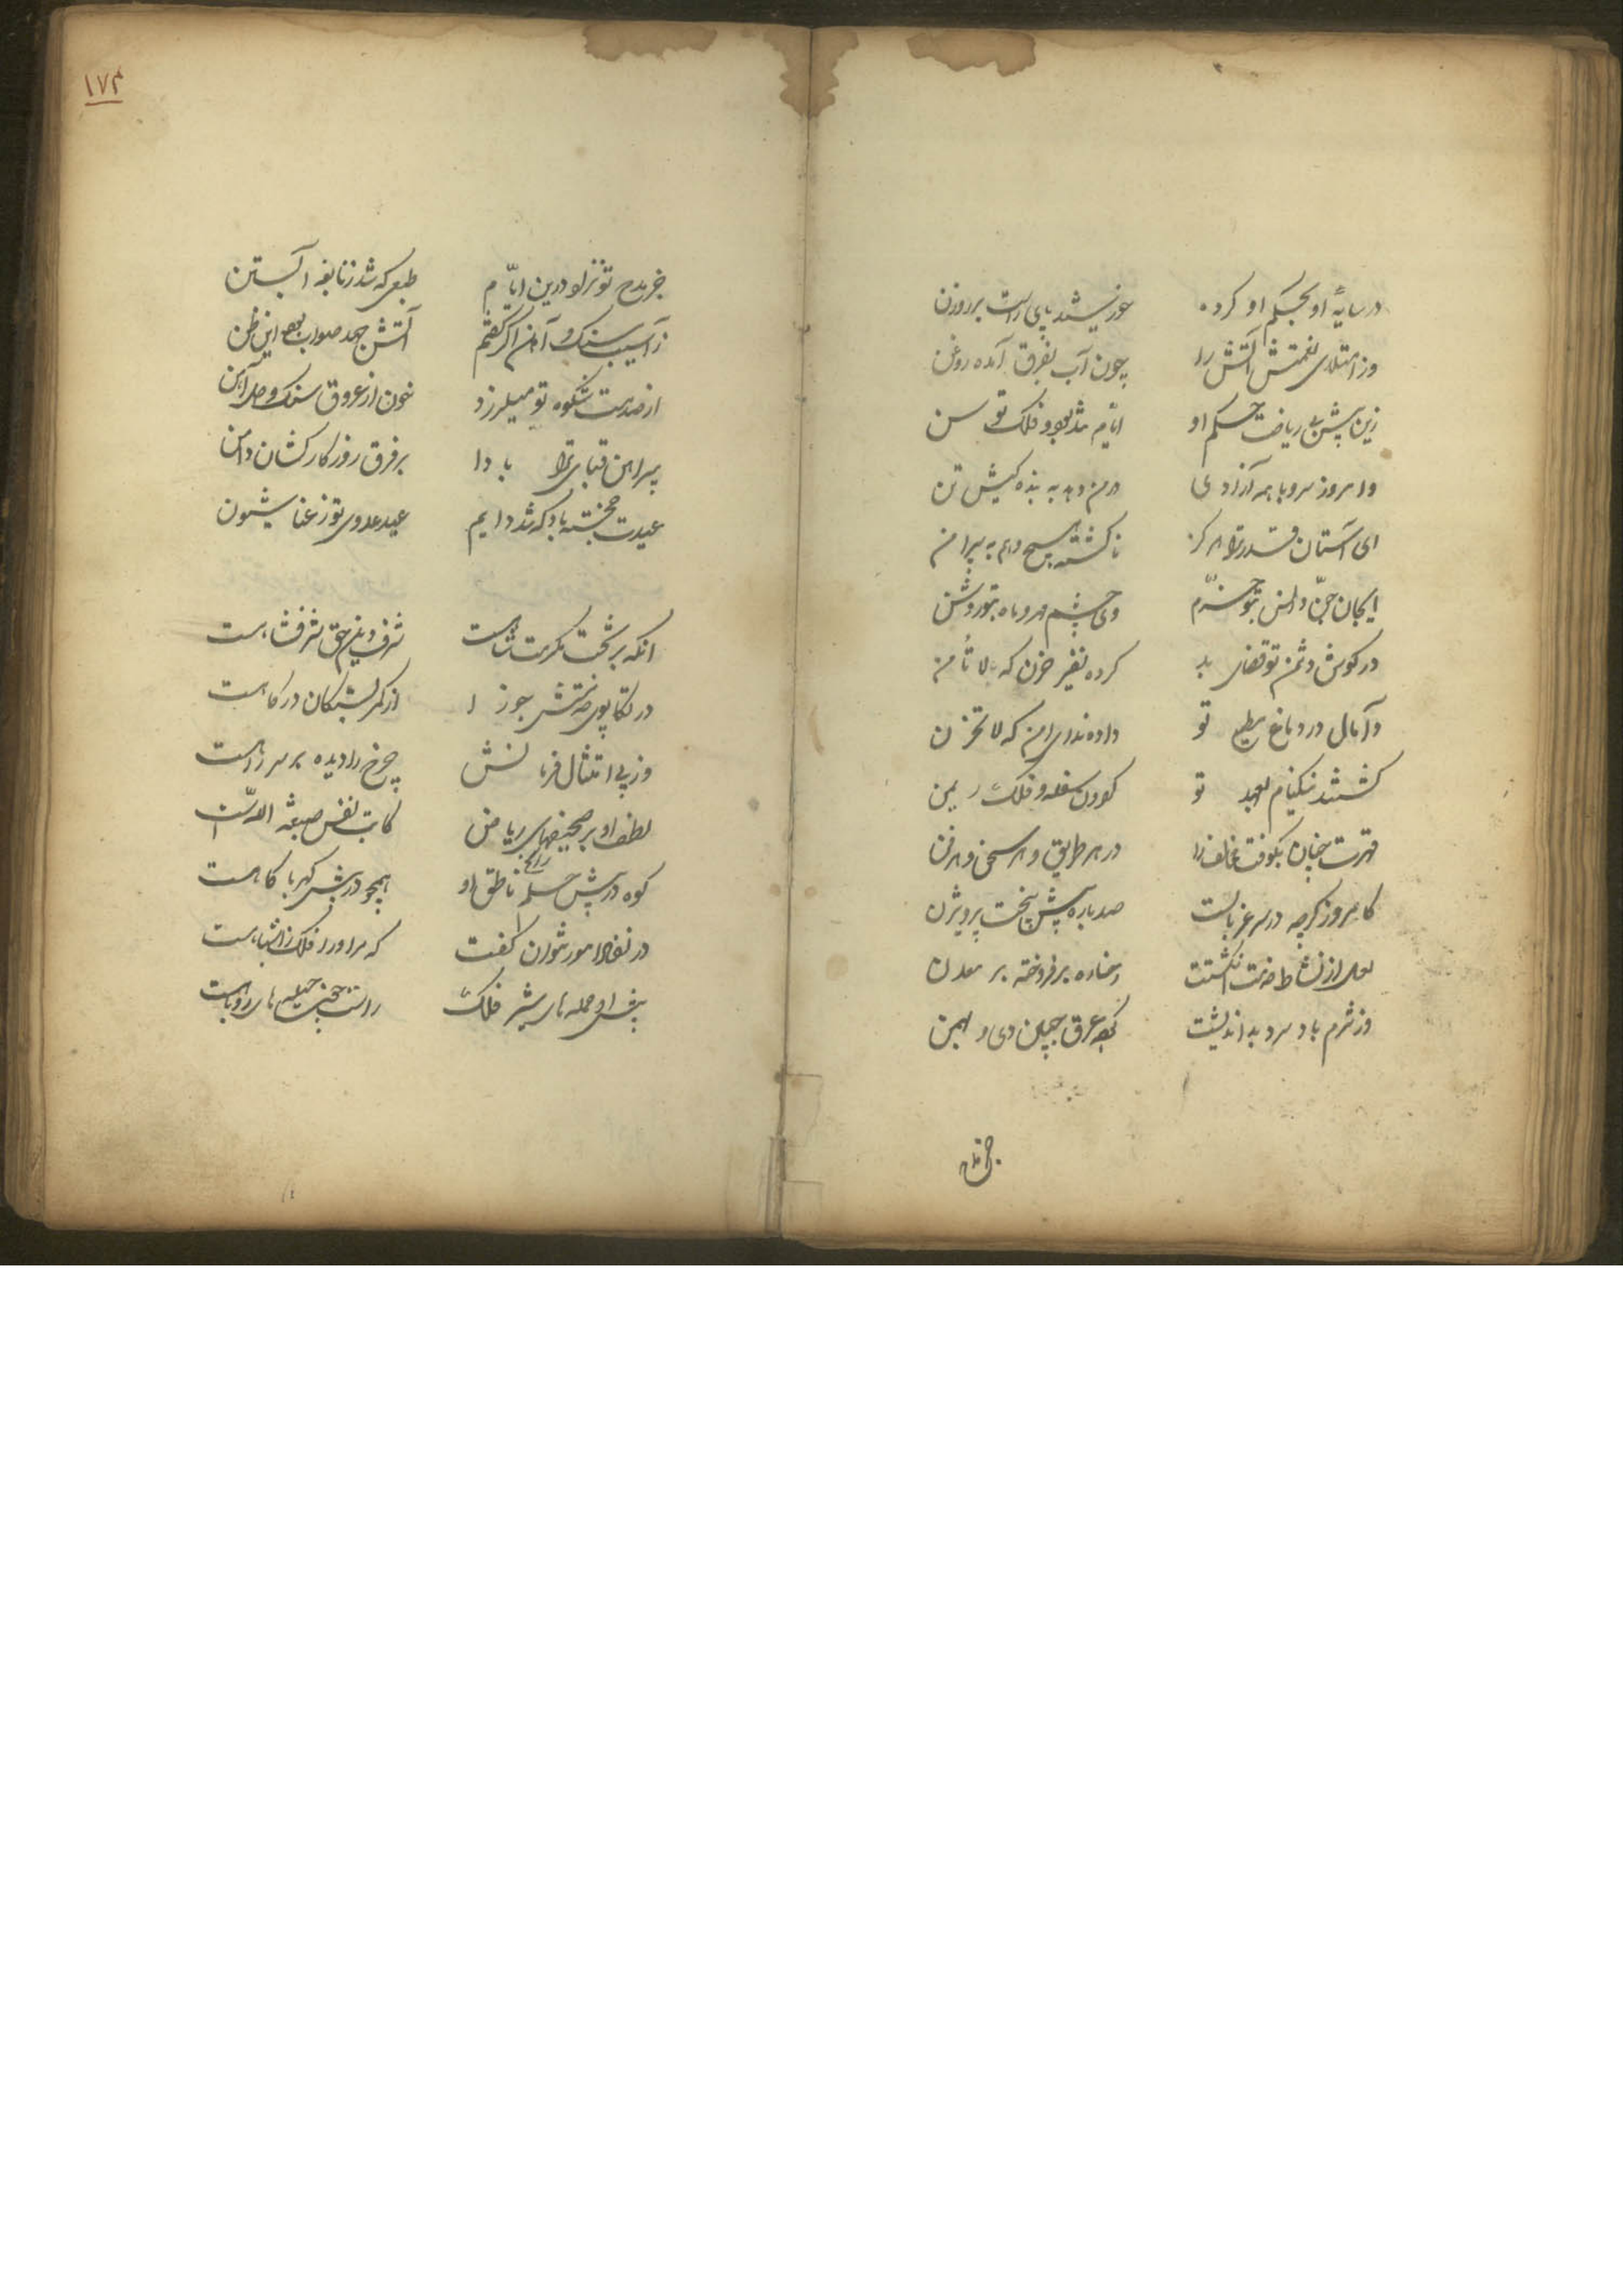 در سایهٔ او بحکم او کرده خورشید پای راست بر روزن
وز امتلای نعمتش آتش را چون آب بفرق آمده روغن
زین پیش بی ریاضت حکم او ایام بد بود و فلک توسن
وامروز سرو با همه آزادی در من دهد به بندهٔ کیش تن
ای آستان قدر ترا هرگز ناگشته هیچ وهم به پیرامن
ای جان جن و انس بتو خرم وی چشم مهر و ماه بتو روشن
در گوش دشمن تو قضای بد کرده نفیر حزن که لا تأمن
و آمال در دماغ مطیع تو داده ندای امن که لا تحزن
گشتند نیکنام بعهد تو گردون سفله و فلک ریمن
قهرت چنان بکوفت مخالف را در هر طریق و هر سخن و هر فن
کامروز گرچه در سر غربالست صد باره پیش بیخت پرویزن
لعل از نشاط خدمت انگشتت رخساره برفروخته بر معدن
وز شرم باد سرد بداندیشت عرق جبین دی و بهمن
۱۷۴
جز مدح تو نزاد درین ایام طبعی که شد ز نابغه آبستن
ز آسیب سنگ و آهن اگر گفتم آتش جهد صواب بود این ظن
از صدمت شکوه تو میلرزد خون از عروق سنگ و دل آهن
پیراهن قبای ترا بادا بر فرق روزگار کشان دامن
عیدت خجسته باد که شد دایم عید عدوی تو ز عنا شیون
آنکه بر تخت مکرمت شاهست شرف دین حق شرفشاهست
در تکاپوی خدمتش جوزا از کمر بستگان درگاهست
وز پی امتثال فرمانش چرخ را دیده بر سر راهست
لطف او بر صحیفهای ریاض کاتب نقش صبغة اللهست
کوه در پیش حلم راسخ او همچو در پیش کهربا کاهست
در نفاذ امور نتوان گفت که مر او را فلک ز اشباهست
پیش او حمله های شیر فلک راست چون حیله های روباهست